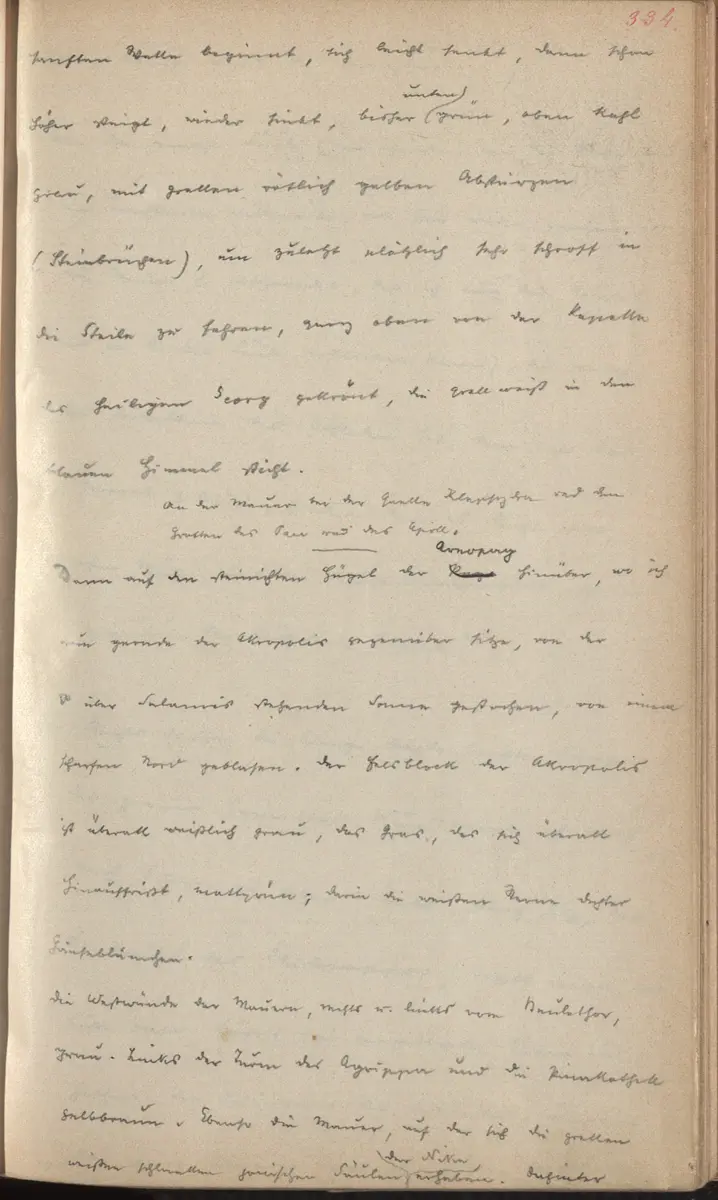 334.
sanften Welle beginnt, sich leicht senkt, dann schon
unten
höher steigt, wieder sinkt, bisher grün, oben kahl
grau, mit grellen rötlich gelben Abstürzen
(Steinbrüchen), um zuletzt plötzlich sehr schroff in
die Steile zu fahren, ganz oben von der Kapelle
des heiligen Georg gekrönt, die grell weiß in den
blauen Himmel sticht.
An der Mauer bei der Quelle Klepsydra und den
Grotten des Pan und des Apoll.
Areopag
Dann auf den steinichten Hügel der hinüber, wo ich
nun gerade der Akropolis gegenüber sitze, von der
über Salamis stehenden Sonne gestochen, von einem
scharfen Nord geblasen. Der Felsblock der Akropolis
ist überall weißlich grau, das Gras, das sich überall
hinauffrißt, mattgrün; darin die weißen Sterne dichter
Gänseblümchen.
Die Westwände der Mauern, rechts u. links vom Beulethor,
grau. Links der Turm des Agrippa und die Pinakothek
gelbbraun. Ebenso die Mauer, auf der sich die grellen
der Nike
weißen schlanken jonischen Säulen erheben. Dahinter